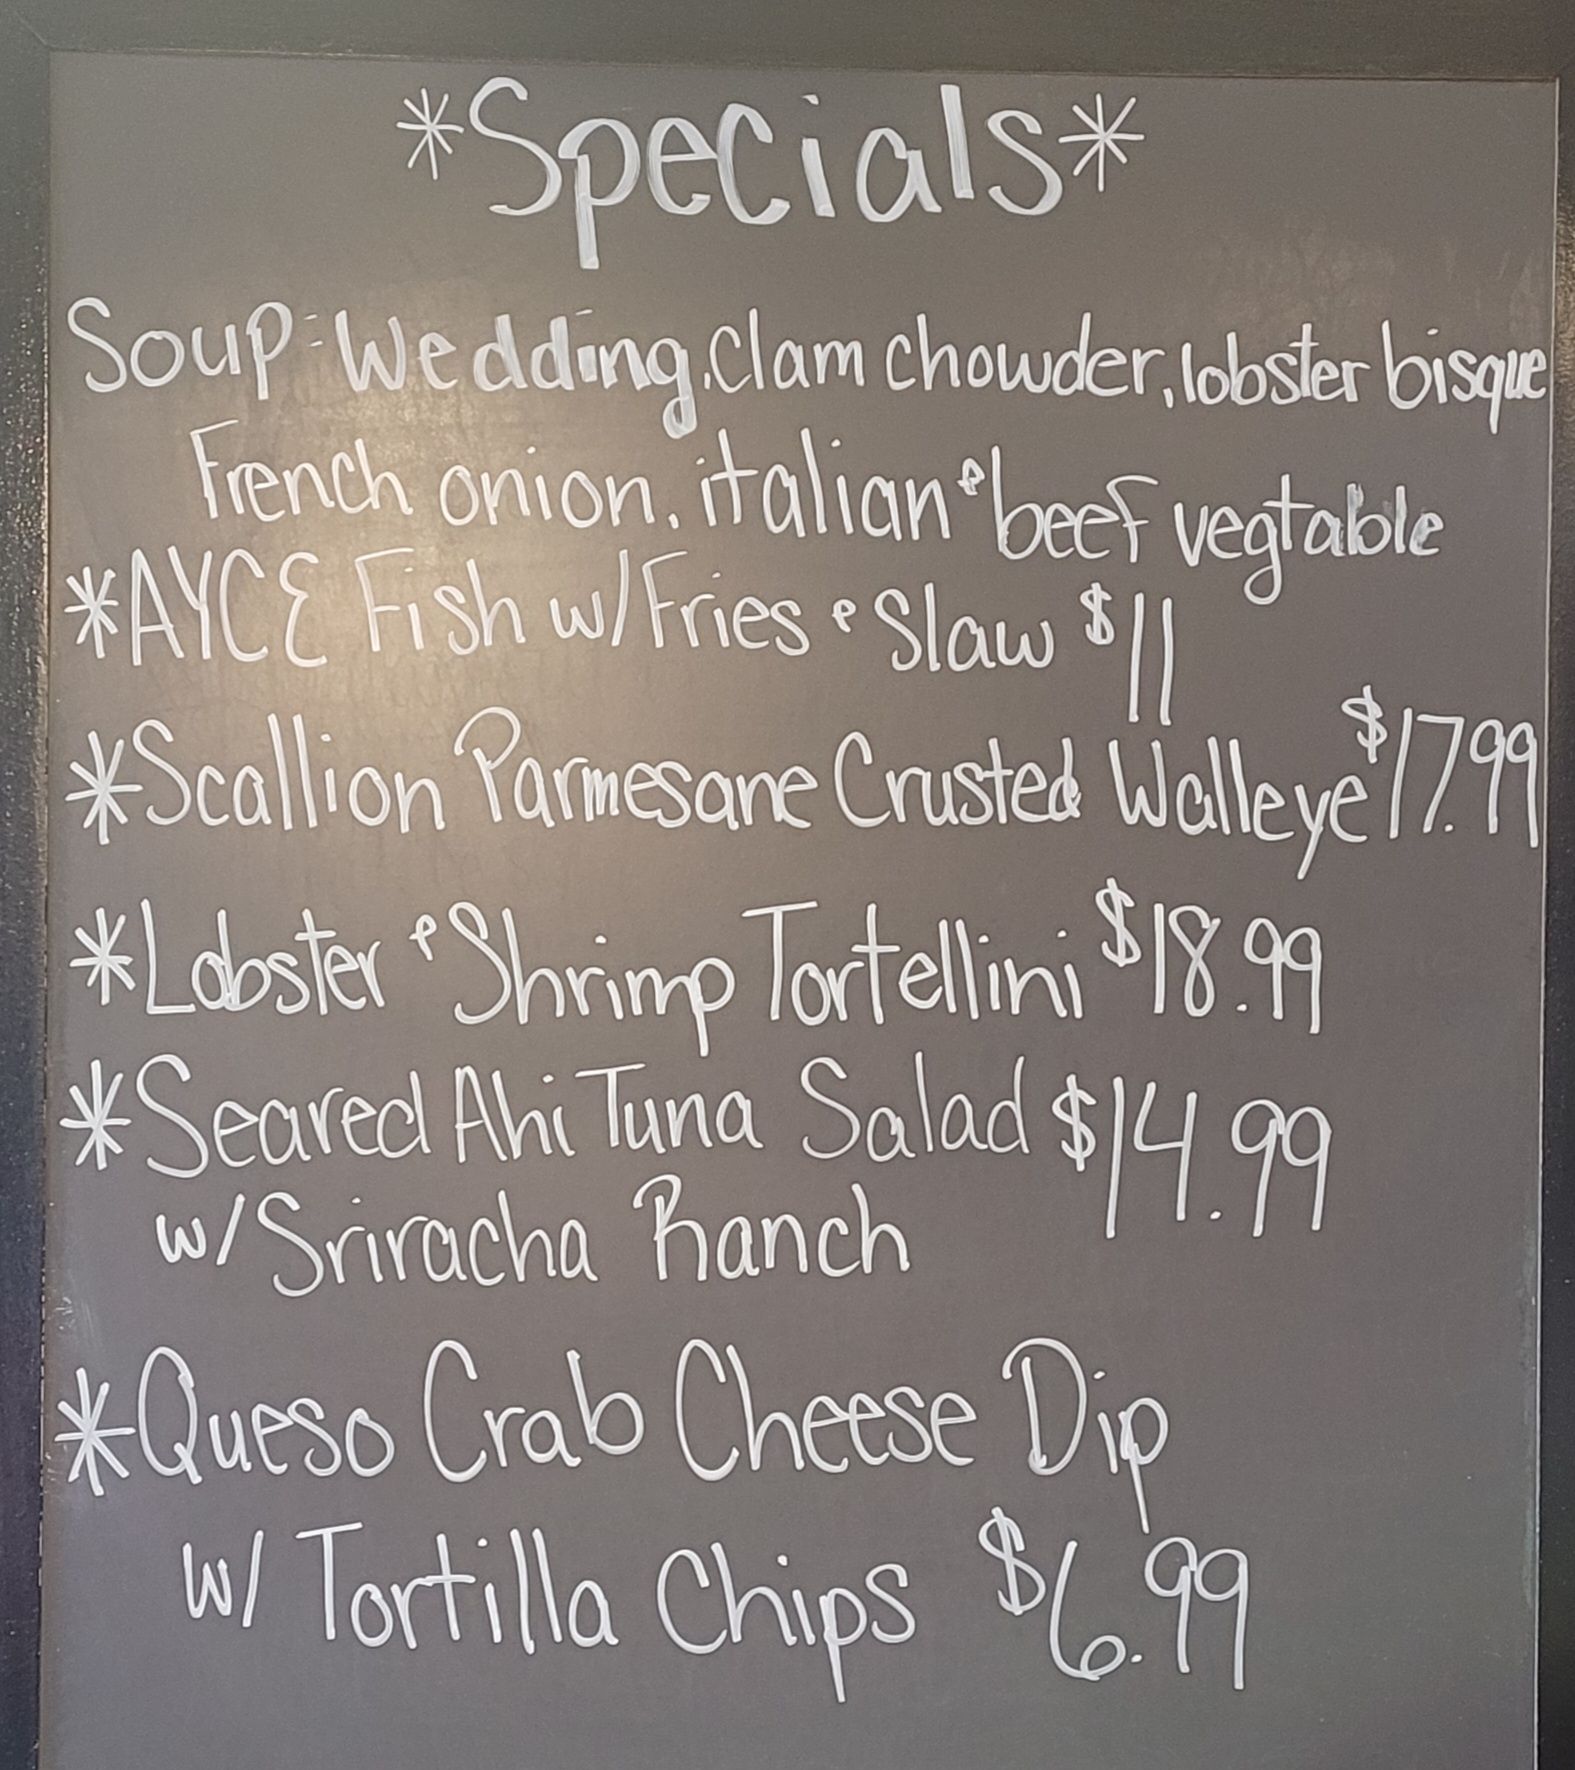 *Specials*
Soup: Wedding, Clam chowder, lobster bisque
French onion, italian & beef vegtable
*AYCE Fish w/Fries & Slaw $11
*Scallion Parmesane Crusted Walleye $17.99
*Lobster & Shrimp Tortellini $18.99
*Seared Ahi Tuna Salad $14.99
w/Sriracha Ranch
*Queso Crab Cheese Dip
w/ Tortilla Chips $6.99